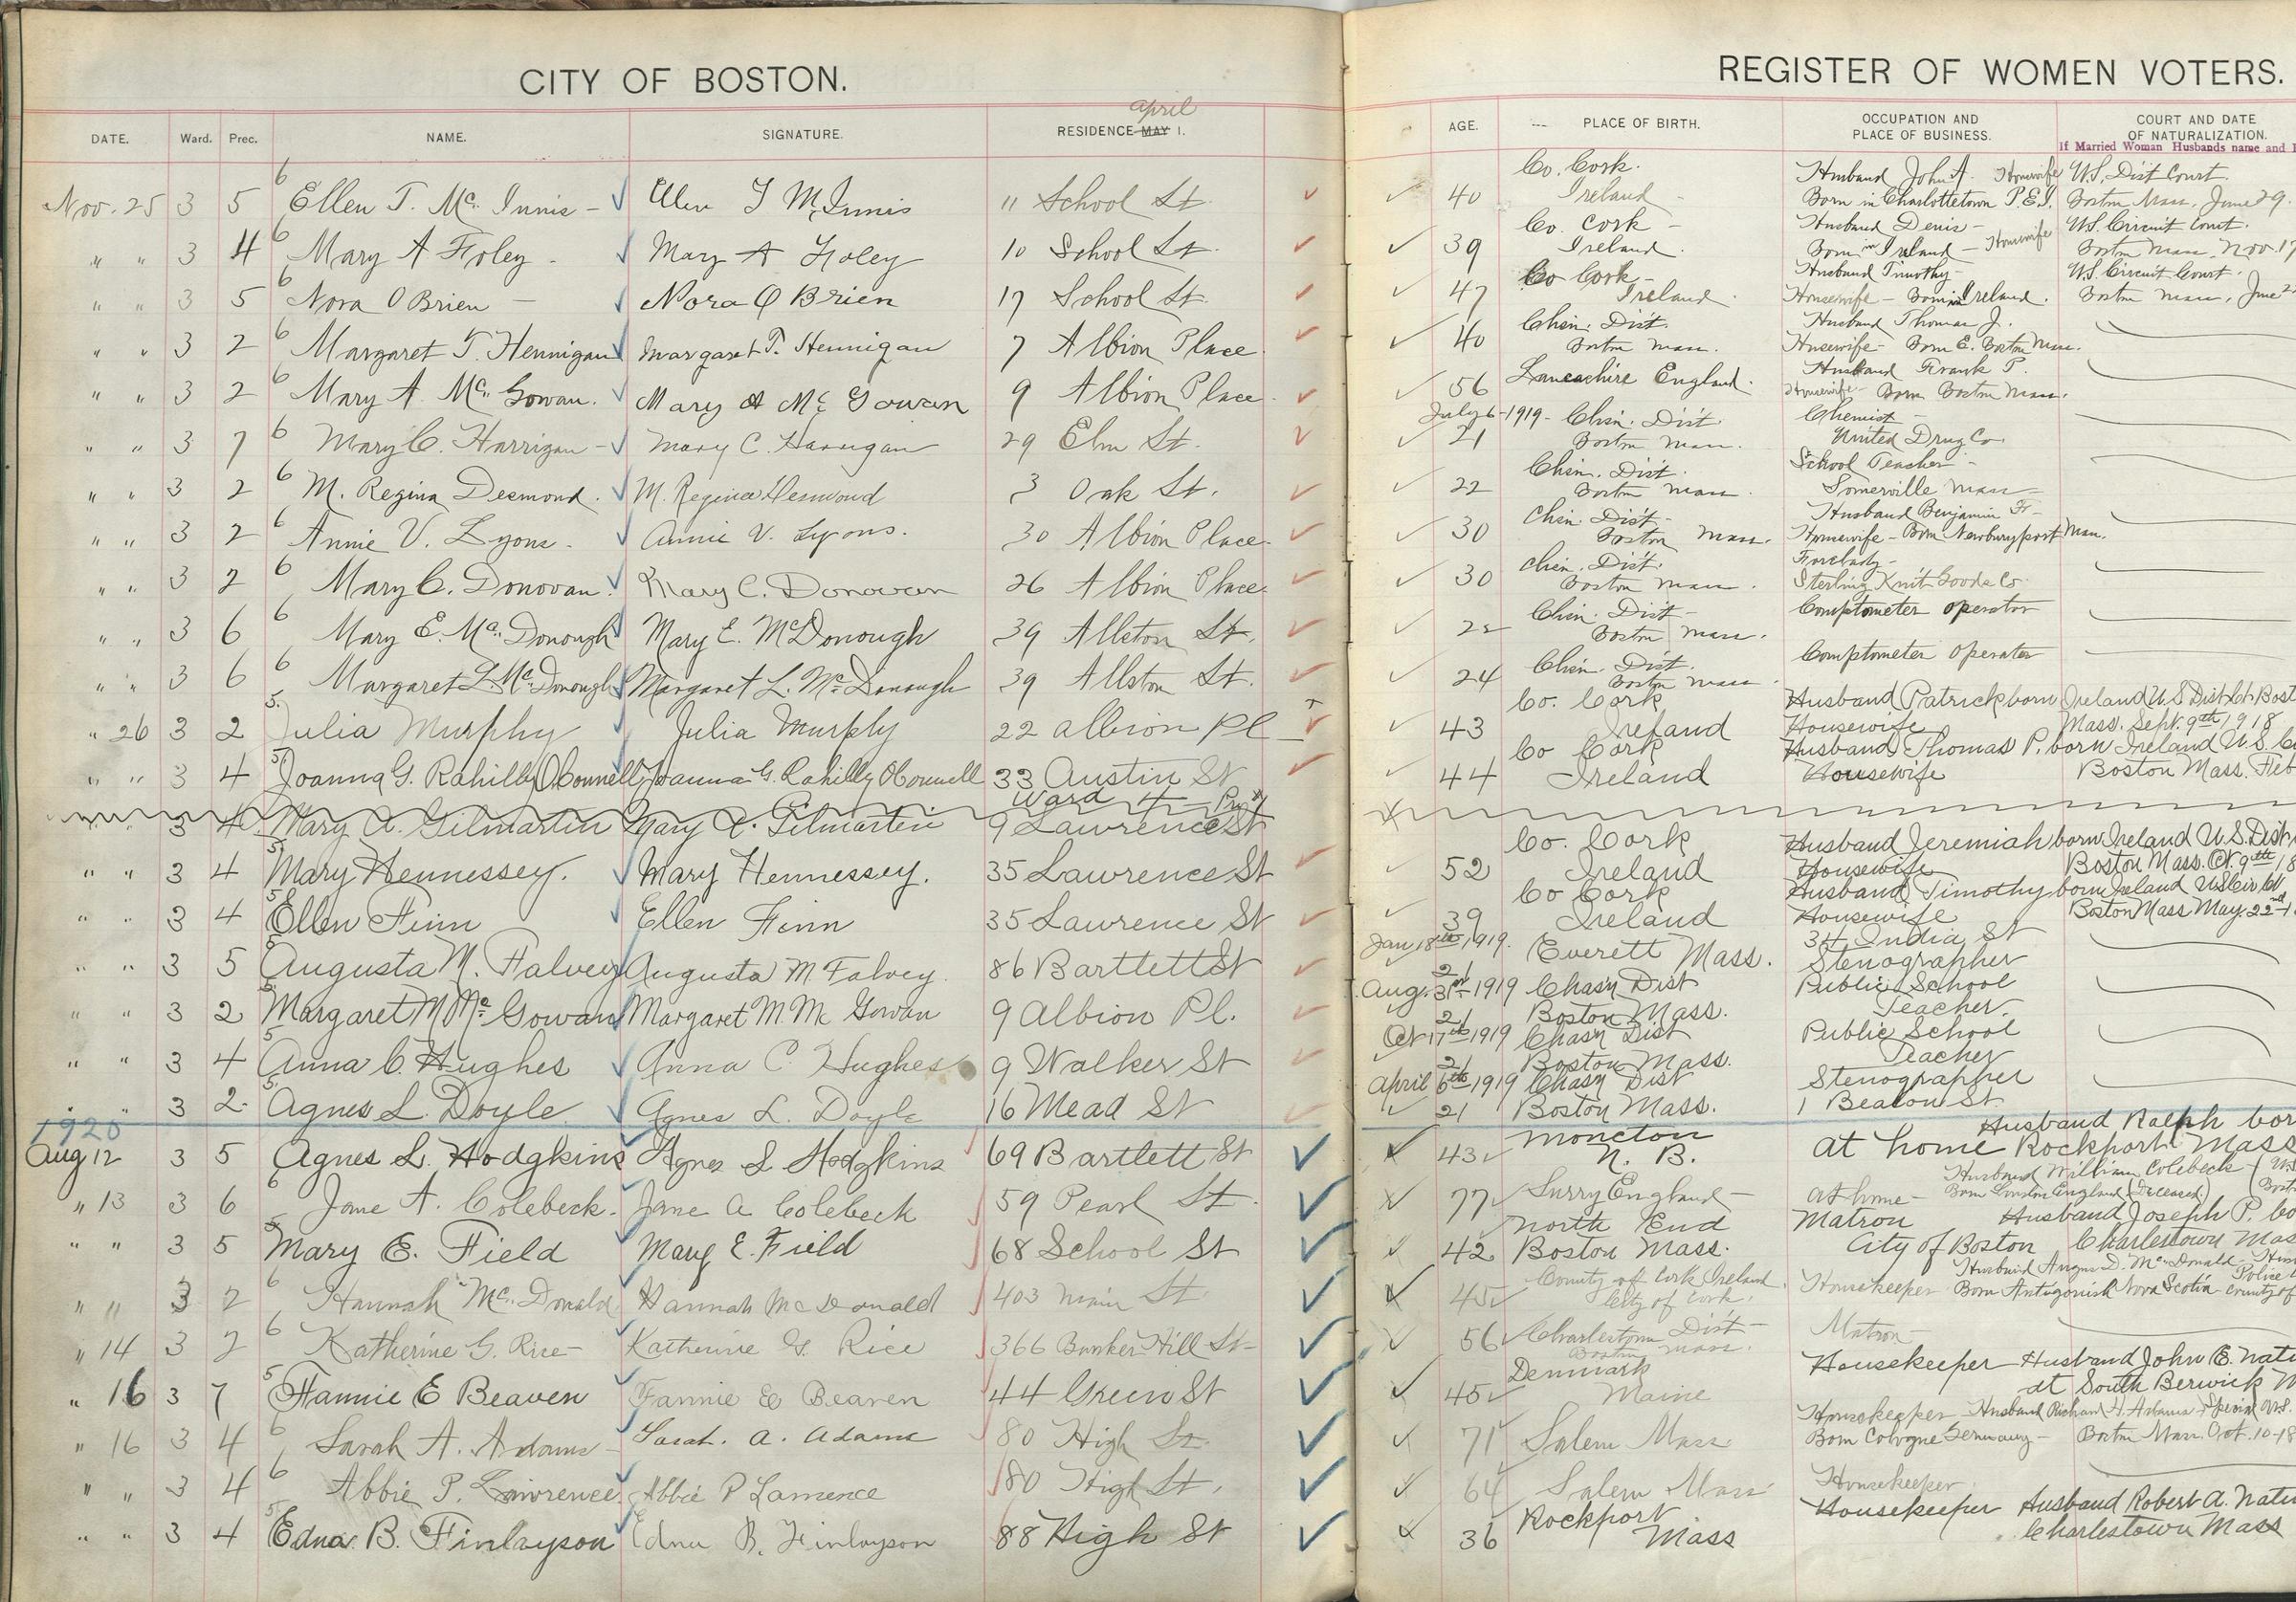 CITY OF BOSTON.
REGISTER OF WOMEN VOTERS.
DATE. Ward. Prec. NAME. SIGNATURE. RESIDENCE MAY 1. april
AGE. PLACE OF BIRTH. OCCUPATION AND PLACE OF BUSINESS. COURT AND DATE OF NATURALIZATION.
If Married Woman Husbands name and
Nov. 25 3 5 6 Ellen T. Mc Innis - Ellen T McInnis 11 School St 40 Co. Cork. Ireland Husband John A. Housewife Born in Charlottetown P.E.I. U.S. Dist Court. Boston Mass, June 29.
" " 3 4 6 Mary A Foley - Mary A Foley 10 School St 39 Co. Cork - Ireland. Husband Denis - Born in Ireland - Housewife U.S. Circuit Court. Boston Mass. Nov. 17
" " 3 5 6 Nora O Brien - Nora O Brien 17 School St. 47 Co Cork - Ireland. Husband Timothy - Housewife - Born in Ireland. U.S. Circuit Court. Boston Mass, June 2
" " 3 2 6 Margaret T. Hennigan Margaret T. Hennigan 7 Albion Place. 40 Chsn. Dist. Boston Mass. Husband Thomas J. Housewife - Born E. Boston Mass.
" " 3 2 6 Mary A. Mc Gowan. Mary A Mc Gowan 9 Albion Place. 56 Lancashire England. Husband Frank P. Housewife - Born Boston Mass.
" " 3 7 6 Mary C. Harrigan - Mary C. Harrigan 29 Elm St. July 6-1919- 21 Chsn. Dist. Boston Mass. Chemist - United Drug Co.
" " 3 2 6 M. Regina Desmond. M. Regina Desmond 3 Oak St. 22 Chsn. Dist. Boston Mass. School Teacher - Somerville Mass
" " 3 2 6 Annie V. Lyons. Annie V. Lyons. 30 Albion Place. 30 Chsn. Dist - Boston Mass. Husband Benjamin F. - Housewife - Born Newburyport Mass.
" " 3 2 6 Mary C. Donovan. Mary C. Donovan 26 Albion Place. 30 Chsn. Dist. Boston Mass. Forelady - Sterling Knit Goods Co.
" " 3 6 6 Mary E. Mc Donough Mary E. McDonough 39 Allston St. Chsn. Dist - Boston Mass. Comptometer operator
" " 3 6 6 Margaret L. Mc Donough Margaret L. Mc Donough 39 Allston St. 24 Chsn. Dist. Boston Mass Comptometer operator
" 26 3 2 5. Julia Murphy Julia Murphy 22 Albion Pl 43 Co. Cork Ireland Husband Patrick born Ireland Housewife U.S Dist Ct. Bost Mass. Sept. 9th 1918
" " 3 4 5 Joanna G. Rahilly O'Connell Joanna G. Rahilly OConnell 33 Austin St 44 Co Cork Ireland Husband Thomas P. born Ireland Housewife U.S. Boston Mass. Feb
" " 3 4 5 Mary A. Gilmartin Mary A. Gilmartin Ward 4 9 Lawrence St
" " 3 4 5 Mary Hennessey. Mary Hennessey. 35 Lawrence St 52 Co. Cork Ireland Husband Jeremiah born Ireland Housewife U.S. Dist Boston Mass. Oct. 9th 18
" " 3 4 5 Ellen Finn Ellen Finn 35 Lawrence St 39 Co Cork Ireland Husband Timothy born Ireland Housewife U.S Cir Ct Boston Mass May 22nd
" " 3 5 5 Augusta M. Falvey Augusta M Falvey. 86 Bartlett St Jan 18th 1919. 21 Everett Mass. 34 India St Stenographer
" " 3 2 5 Margaret M Mc Gowan Margaret M. Mc Gowan 9 Albion Pl. Aug. 31st 1919 21 Chasn Dist Boston Mass. Public School Teacher.
" " 3 4 5 Anna C. Hughes Anna C Hughes 9 Walker St Oct 17th 1919 21 Chasn Dist Boston Mass. Public School Teacher
" " 3 2 5 Agnes L. Doyle Agnes L. Doyle 16 Mead St April 6th 1919 21 Chasn Dist Boston Mass. Stenographer 1 Beacon St
1920
Aug 12 3 5 Agnes L. Hodgkins Agnes L Hodgkins 69 Bartlett St 43 Moncton N. B. at home Husband Ralph bor Rockport Mass
" 13 3 6 6 Jane A. Colebeck. Jane A Colebeck 59 Pearl St. 77 Surry England - at home - Husband William Colebeck - Born London England (Deceased)
" " 3 5 5 Mary E. Field Mary E. Field 68 School St 42 North End Boston Mass. Matron City of Boston Husband Joseph P. bo Charlestown Mas
" 11 3 2 6 Hannah Mc. Donald Hannah McDonald 403 Main St. 45 County of Cork Ireland. City of Cork. Housekeeper Husband Angus D. Mc Donald Born Antigonish Nova Scotia - County of Police
" 14 3 2 6 Katherine G. Rice - Katherine G. Rice 366 Bunker Hill St - 56 Charlestown Dist - Boston Mass. Matron
" 16 3 7 5 Fannie E Beaven Fannie E Beaven 44 Green St 45 Denmark Maine Housekeeper Husband John E. nati at South Berwick
" 16 3 4 6 Sarah A. Adams - Sarah. A. Adams 80 High St. 71 Salem Mass Housekeeper - Husband Richard H. Adams Born Cologne Germany - Boston Mass. Oct. 10-18
" " 3 4 6 Abbie P. Lawrence Abbie P Lawrence 80 High St. 64 Salem Mass Housekeeper.
" " 3 4 5 Edna B. Finlayson Edna B. Finlayson 88 High St 36 Rockport Mass Housekeeper Husband Robert A. nati Charlestown Mass